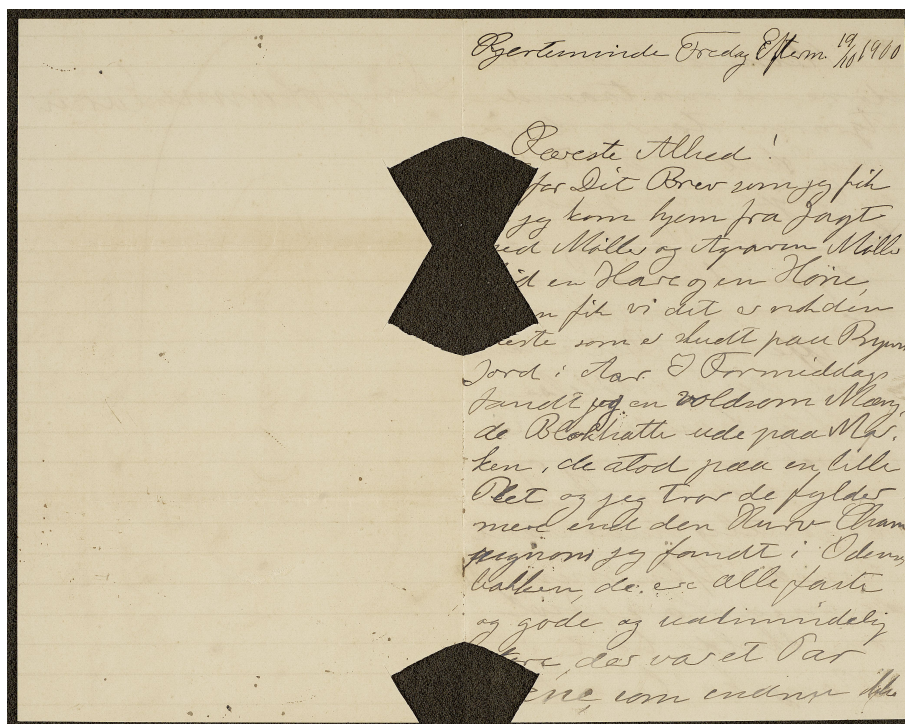 Kjerteminde Fredag Efterm. 19/10 1900
Kæreste Alhed!
for Dit Brev som jeg fik
jeg kom hjem fra Jagt
ed Møller og Møller
id en Hare og en Høne,
n fik vi det er nok den
ste som er skudt paa
Jord i Aar. I Formiddags
fandt jeg en voldsom Mæng
de Blækhatte ude paa Mar-
ken, de stod paa en lille
Plet og jeg tror de fylder
mere end den Kurv Cham
pignons jeg fandt i Odens
bakken, de er alle faste
og gode og ualmindelig
der var et Par
som endnu ikke